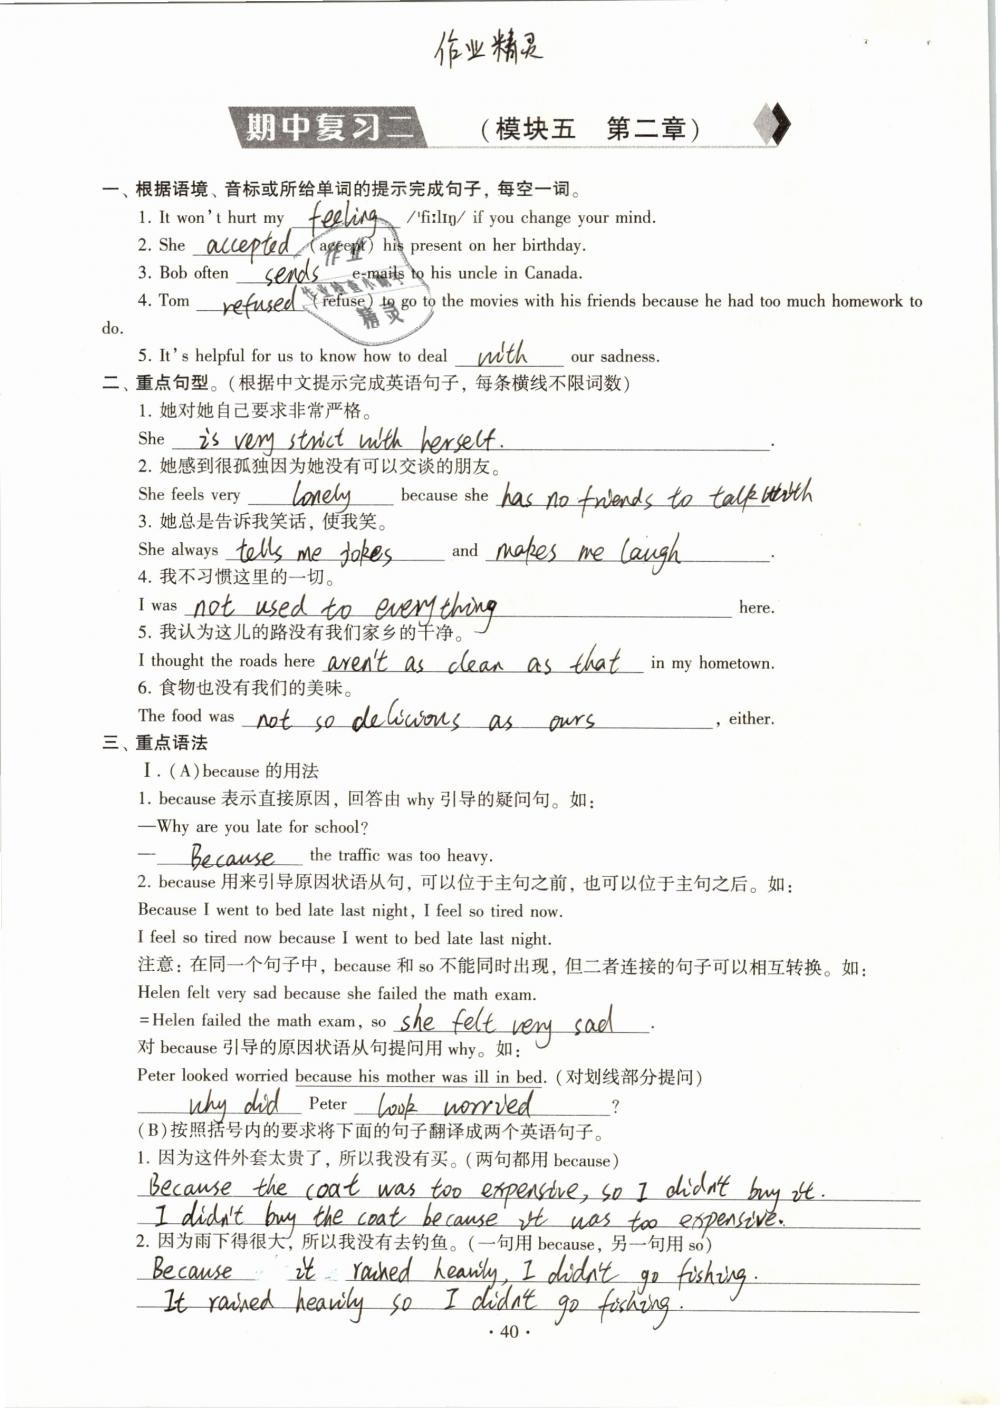 作业精灵
期中复习二 (模块五 第二章)
一、根据语境、音标或所给单词的提示完成句子，每空一词。
1. It won't hurt my feeling /ˈfiːlɪŋ/ if you change your mind.
2. She accepted (accept) his present on her birthday.
3. Bob often sends e-mails to his uncle in Canada.
4. Tom refused (refuse) to go to the movies with his friends because he had too much homework to
do.
5. It's helpful for us to know how to deal with our sadness.
二、重点句型。(根据中文提示完成英语句子，每条横线不限词数)
1. 她对她自己要求非常严格。
She is very strict with herself.
2. 她感到很孤独因为她没有可以交谈的朋友。
She feels very lonely because she has no friends to talk with
3. 她总是告诉我笑话，使我笑。
She always tells me jokes and makes me laugh.
4. 我不习惯这里的一切。
I was not used to everything here.
5. 我认为这儿的路没有我们家乡的干净。
I thought the roads here aren't as clean as that in my hometown.
6. 食物也没有我们的美味。
The food was not so delicious as ours, either.
三、重点语法
Ⅰ. (A)because 的用法
1. because 表示直接原因，回答由 why 引导的疑问句。如：
—Why are you late for school?
— Because the traffic was too heavy.
2. because 用来引导原因状语从句，可以位于主句之前，也可以位于主句之后。如：
Because I went to bed late last night, I feel so tired now.
I feel so tired now because I went to bed late last night.
注意：在同一个句子中，because 和 so 不能同时出现，但二者连接的句子可以相互转换。如：
Helen felt very sad because she failed the math exam.
=Helen failed the math exam, so she felt very sad.
对 because 引导的原因状语从句提问用 why。如：
Peter looked worried because his mother was ill in bed. (对划线部分提问)
why did Peter look worried ?
(B)按照括号内的要求将下面的句子翻译成两个英语句子。
1. 因为这件外套太贵了，所以我没有买。(两句都用 because)
Because the coat was too expensive, so I didn't buy it.
I didn't buy the coat because it was too expensive.
2. 因为雨下得很大，所以我没有去钓鱼。(一句用 because，另一句用 so)
Because it rained heavily, I didn't go fishing.
It rained heavily so I didn't go fishing.
· 40 ·